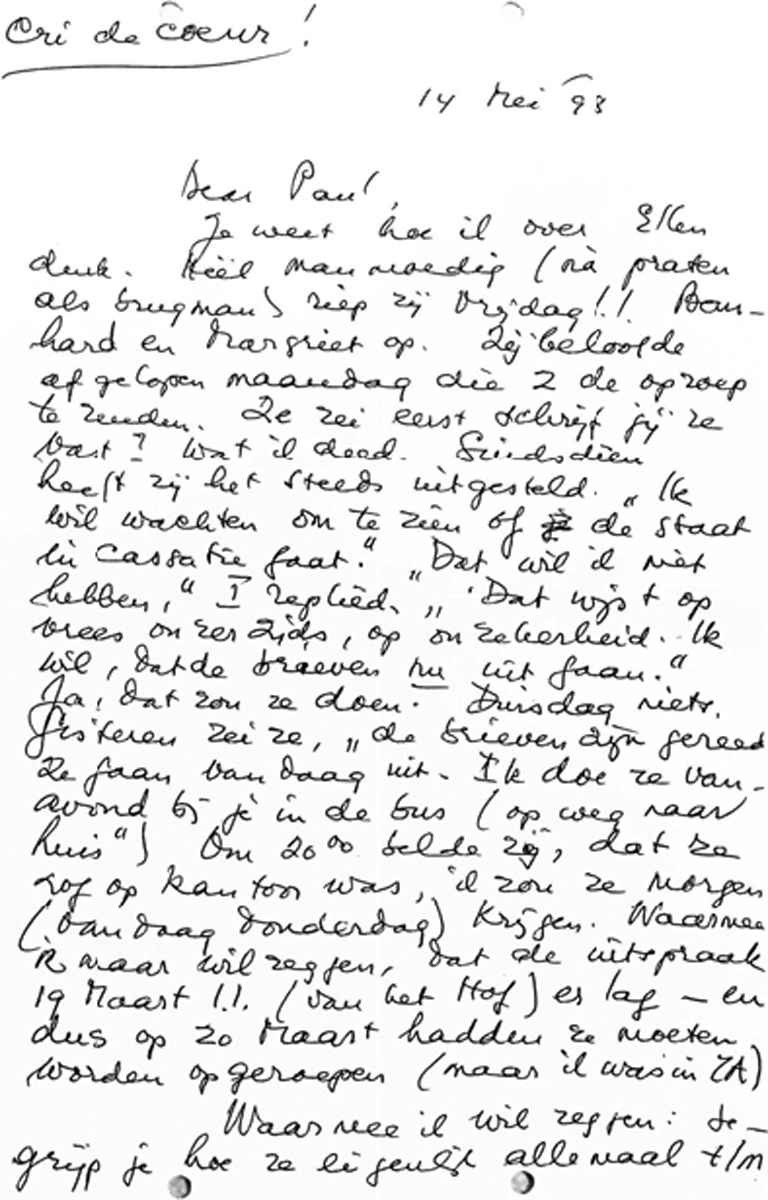 Cri de coeur!
14 Mei '93
Dear Paul,
Je weet hoe ik over Ellen
denk. Héél manmoedig (nà praten
als brugman) riep zij Vrijdag!! Bern-
hard en Margriet op. Zij beloofde
afgelopen maandag die 2 de oproep
te zenden. Ze zei eerst schrijf jij ze
vast? Wat ik deed. Sindsdien
heeft zij het steeds uitgesteld. „Ik
wil wachten om te zien of de staat
in cassatie gaat." „Dat wil ik niet
hebben," I replied. „Dat wijst op
vrees onzerzijds, op onzekerheid. Ik
wil, dat de brieven nu uit gaan."
Ja, dat zou ze doen. Dinsdag niets.
Gisteren zei ze, „de brieven zijn gereed
Ze gaan vandaag uit. Ik doe ze van-
avond bij je in de bus (op weg naar
huis") Om 20⁰⁰ belde zij, dat ze
nog op kantoor was, ik zou ze morgen
(vandaag donderdag) krijgen. Waarmee
ik maar wil zeggen, dat de uitspraak
19 Maart l.l. (van het Hof) er lag – en
dus op 20 Maart hadden ze moeten
worden opgeroepen (maar ik was in ZA)
Waarmee ik wil zeggen: be-
grijp je hoe ze eigenlijk allemaal t/m